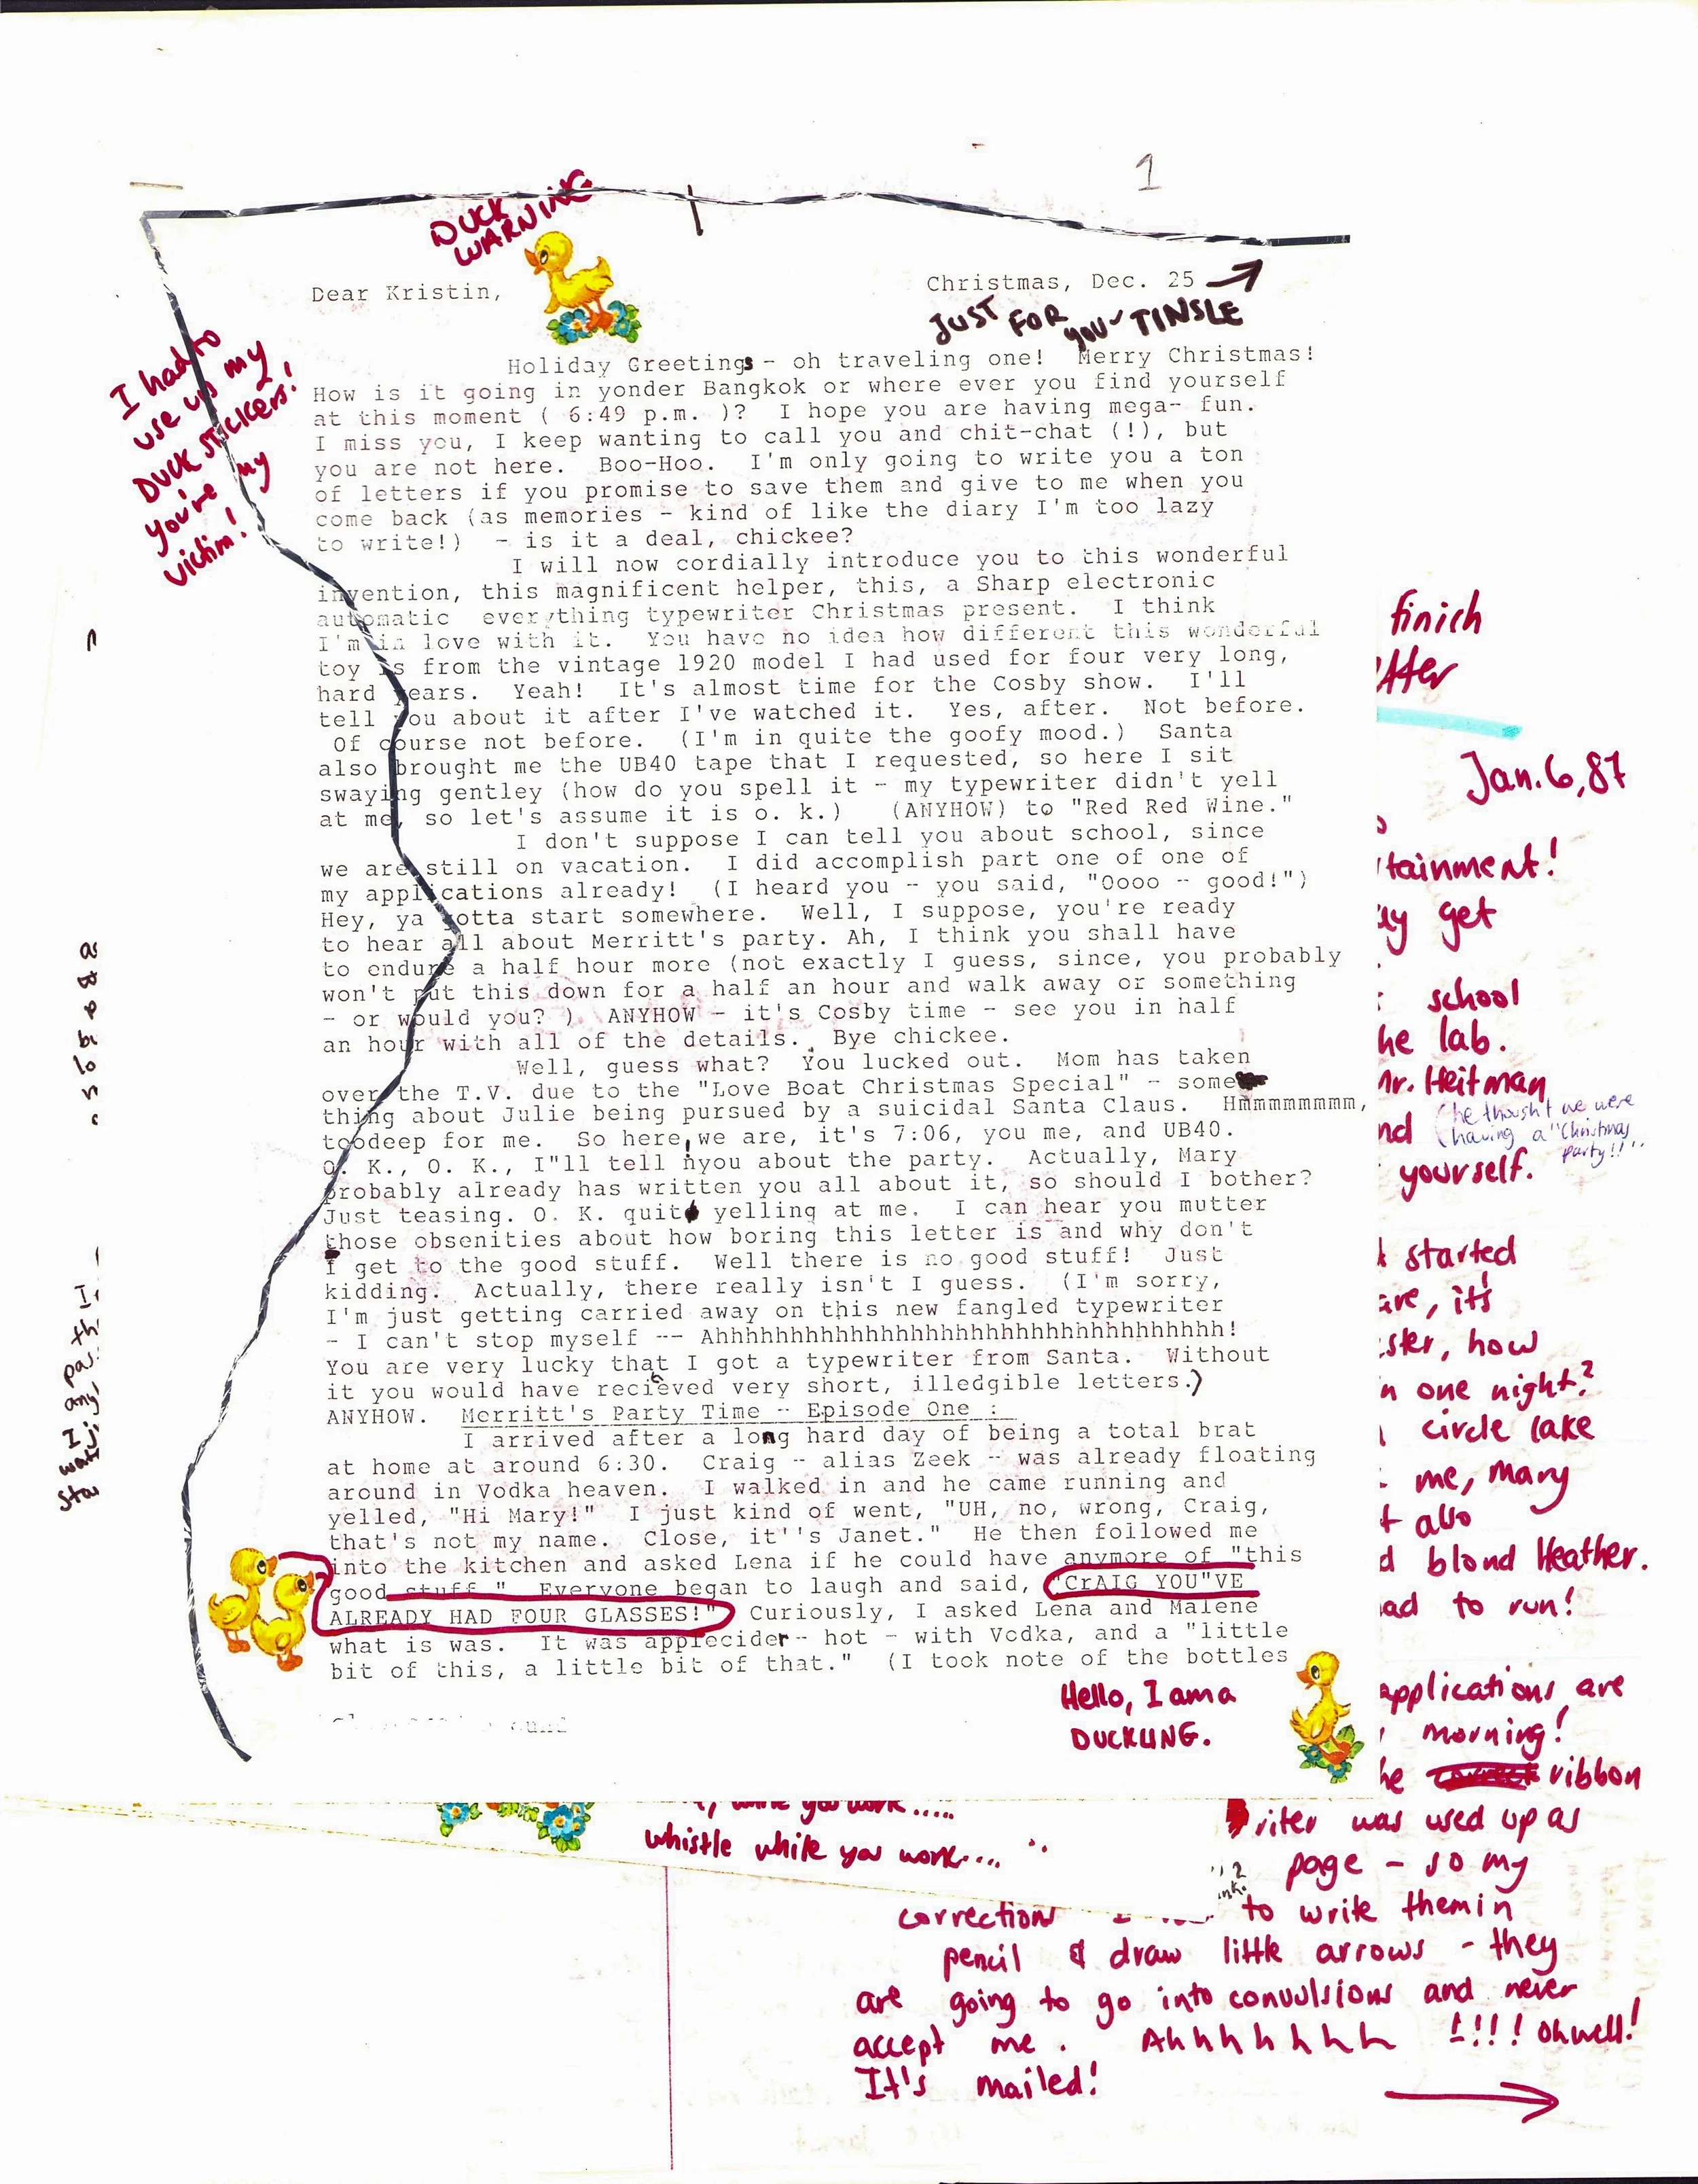 1
DUCK
WARNING
Dear Kristin,
Christmas, Dec. 25
JUST FOR YOU - TINSLE
I had to
use up my
DUCK STICKERS!
you're my
victim!
Holiday Greetings - oh traveling one!  Merry Christmas!
How is it going in yonder Bangkok or where ever you find yourself
at this moment ( 6:49 p.m. )?  I hope you are having mega- fun.
I miss you, I keep wanting to call you and chit-chat (!), but
you are not here.  Boo-Hoo.  I'm only going to write you a ton
of letters if you promise to save them and give to me when you
come back (as memories - kind of like the diary I'm too lazy
to write!)  - is it a deal, chickee?
I will now cordially introduce you to this wonderful
invention, this magnificent helper, this, a Sharp electronic
automatic  everything typewriter Christmas present.  I think
I'm in love with it.  You have no idea how different this wonderful
toy is from the vintage 1920 model I had used for four very long,
hard years.  Yeah!  It's almost time for the Cosby show.  I'll
tell you about it after I've watched it.  Yes, after.  Not before.
Of course not before.  (I'm in quite the goofy mood.)  Santa
also brought me the UB40 tape that I requested, so here I sit
swaying gentley (how do you spell it - my typewriter didn't yell
at me, so let's assume it is o. k.)   (ANYHOW) to "Red Red Wine."
I don't suppose I can tell you about school, since
we are still on vacation.  I did accomplish part one of one of
my applications already!  (I heard you - you said, "Oooo - good!")
Hey, ya gotta start somewhere.  Well, I suppose, you're ready
to hear all about Merritt's party. Ah, I think you shall have
to endure a half hour more (not exactly I guess, since, you probably
won't put this down for a half an hour and walk away or something
- or would you? )  ANYHOW - it's Cosby time - see you in half
an hour with all of the details.  Bye chickee.
Well, guess what?  You lucked out.  Mom has taken
over the T.V. due to the "Love Boat Christmas Special" - some
thing about Julie being pursued by a suicidal Santa Claus.  Hmmmmmmmm,
toodeep for me.  So here we are, it's 7:06, you me, and UB40.
O. K., O. K., I"ll tell nyou about the party.  Actually, Mary
probably already has written you all about it, so should I bother?
Just teasing. O. K. quit yelling at me.  I can hear you mutter
those obsenities about how boring this letter is and why don't
I get to the good stuff.  Well there is no good stuff!  Just
kidding.  Actually, there really isn't I guess.  (I'm sorry,
I'm just getting carried away on this new fangled typewriter
- I can't stop myself -- Ahhhhhhhhhhhhhhhhhhhhhhhhhhhhhhhhhhh!
You are very lucky that I got a typewriter from Santa.  Without
it you would have recieved very short, illedgible letters.)
ANYHOW.  Merritt's Party Time - Episode One :
I arrived after a long hard day of being a total brat
at home at around 6:30.  Craig - alias Zeek - was already floating
around in Vodka heaven.  I walked in and he came running and
yelled, "Hi Mary!"  I just kind of went, "UH, no, wrong, Craig,
that's not my name.  Close, it''s Janet."  He then followed me
into the kitchen and asked Lena if he could have anymore of "this
good stuff."  Everyone began to laugh and said, "CrAIG YOU"VE
ALREADY HAD FOUR GLASSES!"  Curiously, I asked Lena and Malene
what is was.  It was applecider- hot - with Vodka, and a "little
bit of this, a little bit of that."  (I took note of the bottles
Hello, I am a
DUCKLING.
finish
Jan. 6, 87
tainment!
get
school
he lab.
Mr. Heitman
(he thought we were
having a "Christmas
party!!"
yourself.
started
it's
how
one night?
circle lake
me, Mary
also
blond Heather.
to run!
applications are
morning!
ribbon
riter was used up as
page - so my
whistle while you work....
correction
to write them in
pencil & draw little arrows - they
are going to go into convulsions and never
accept me. Ahhhhhhh !!!! Oh well!
It's mailed!